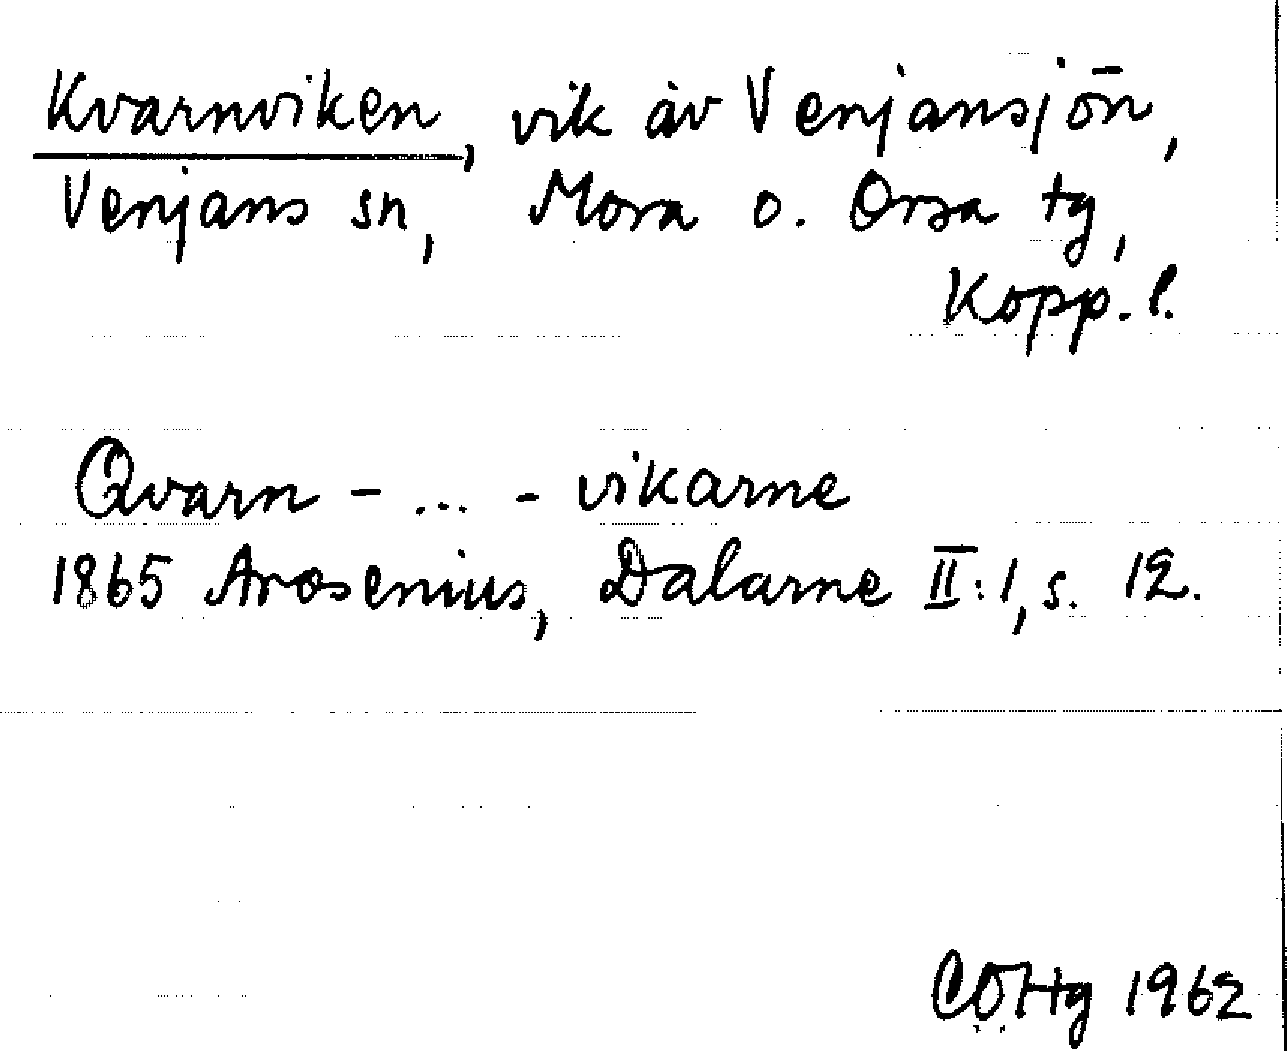 Kvarnviken, vik av Venjansjön,
Venjans sn, Mora o. Orsa tg,
Kopp. l.
Qvarn - ... - vikarne
1865 Arosenius, Dalarne II:1, s. 12.
COHg 1962